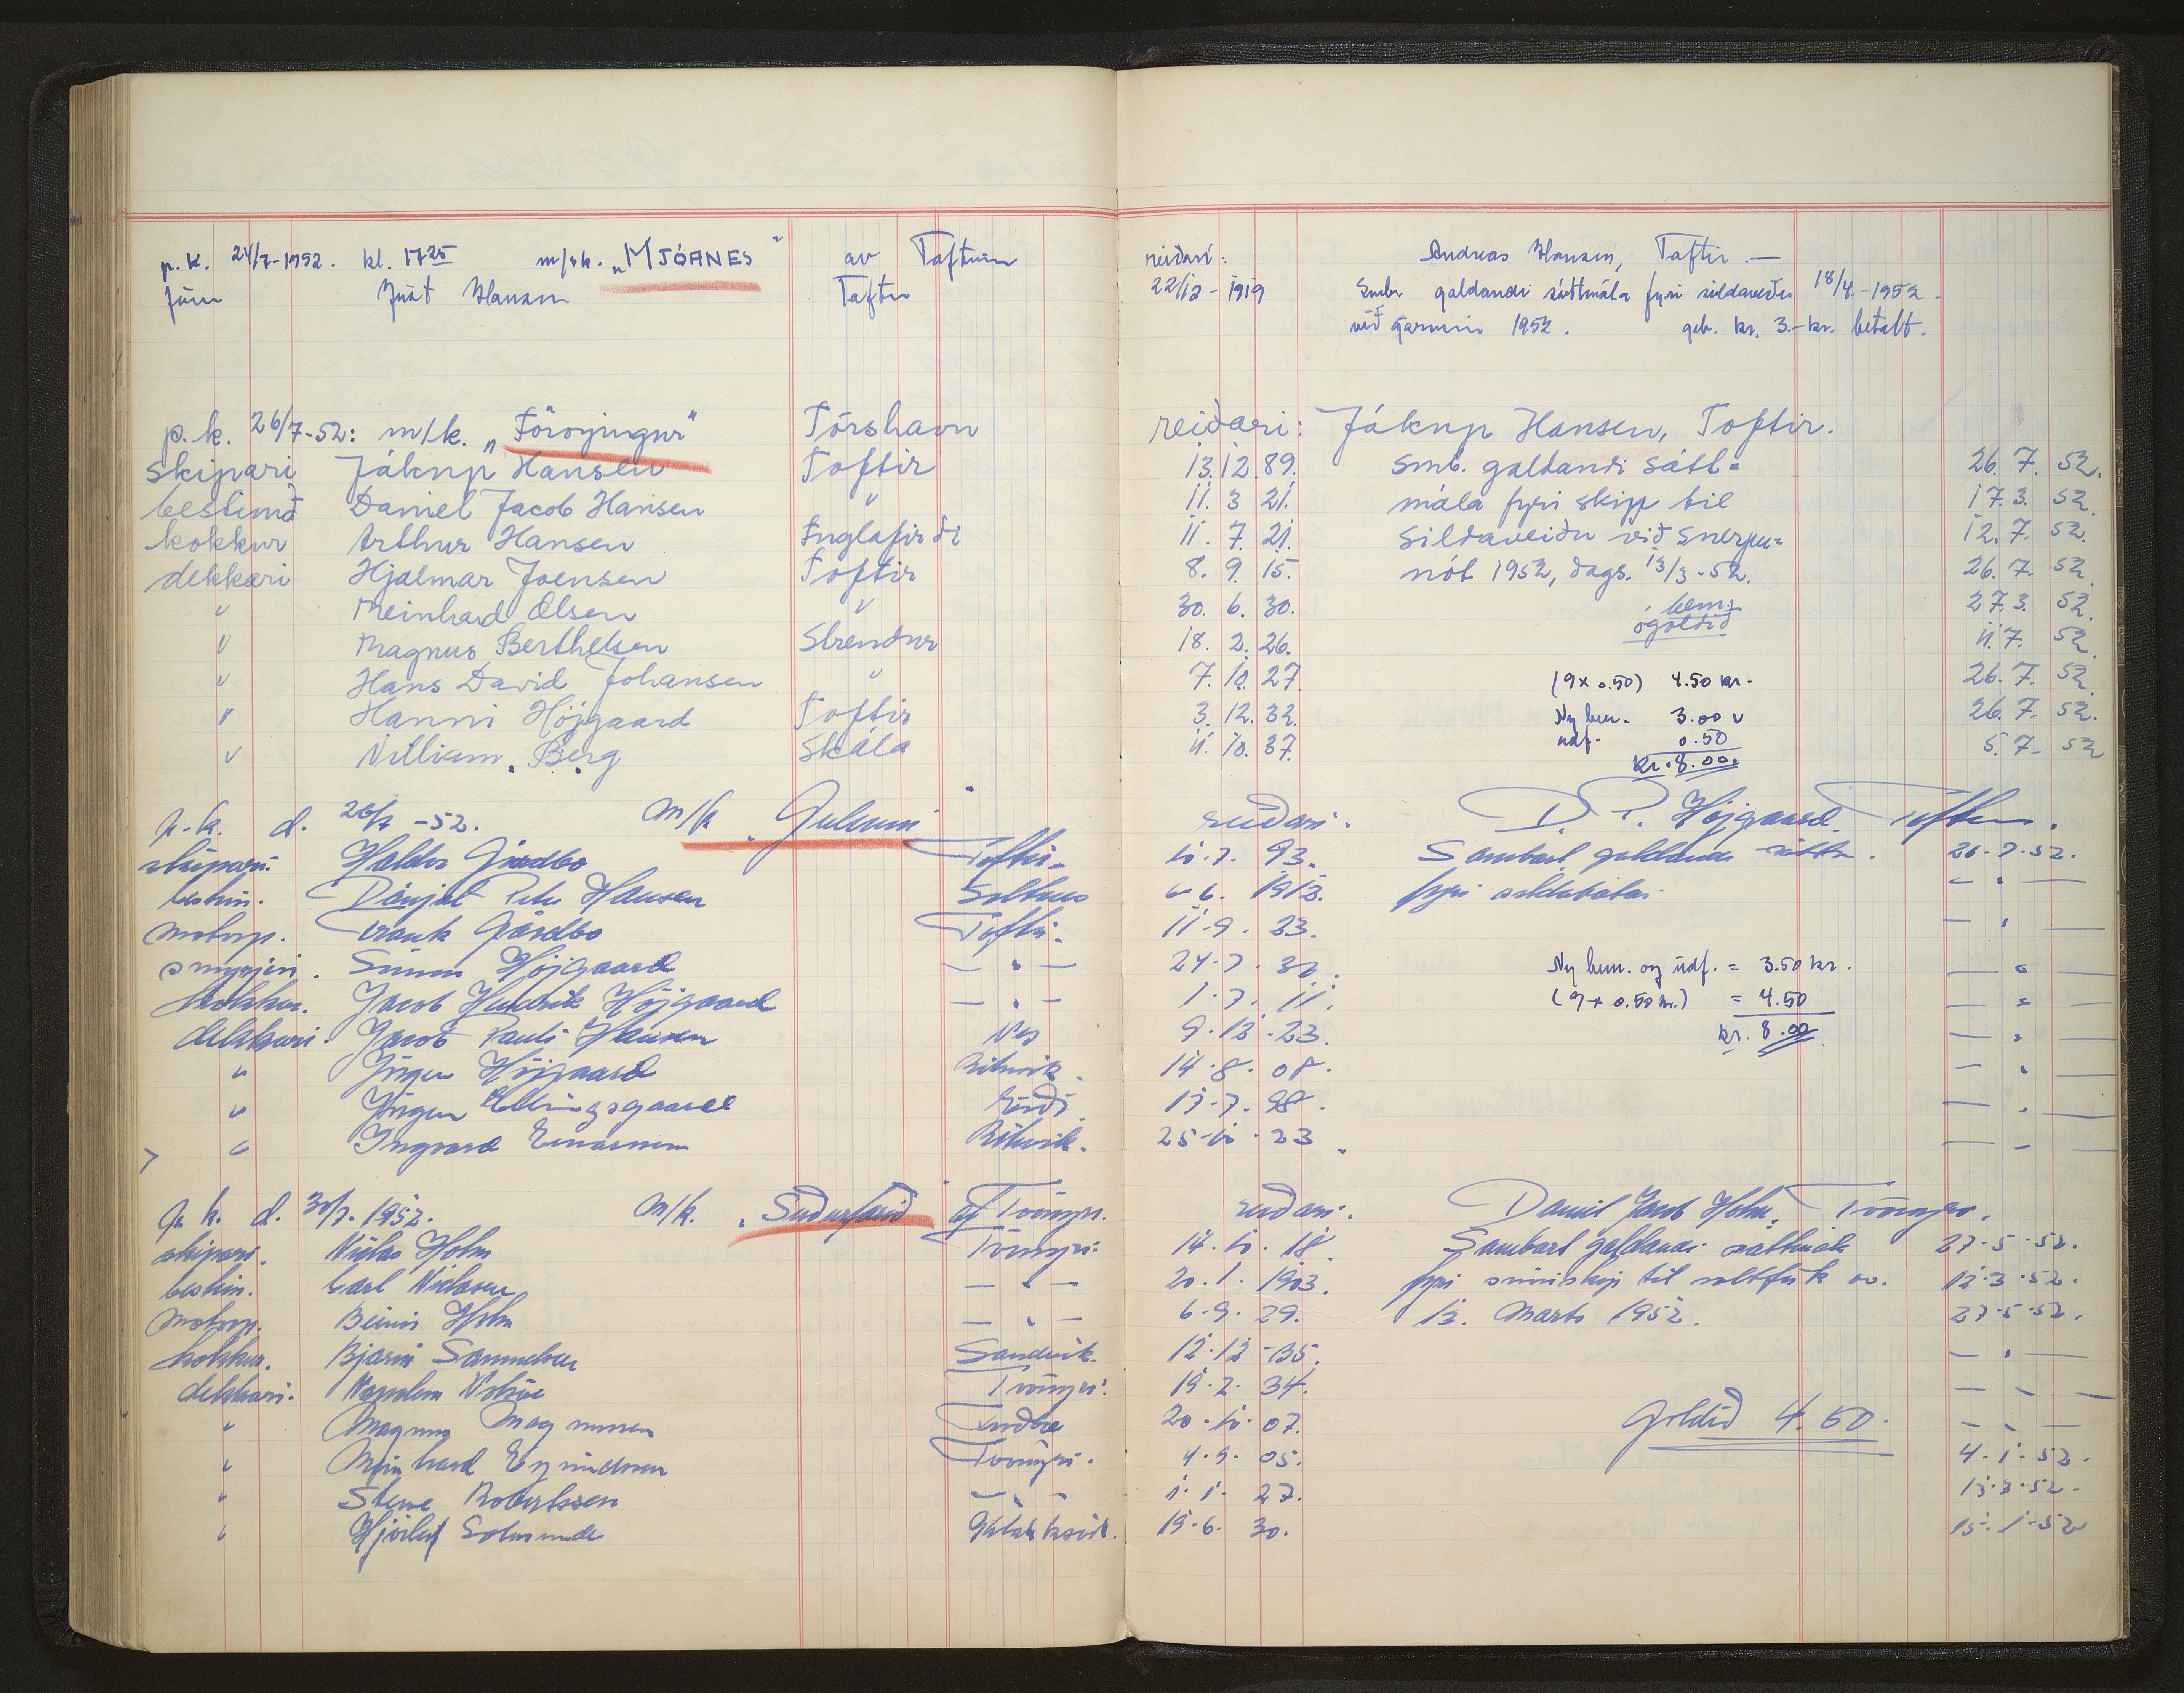 p.k. 24/7-1952. kl. 1725 m/sk. „MJÓANES" av Taftum reiðari: Andreas Hansen, Taftir.—
Jóat Hansen Taftir 22/12-1919 Smbr galdandi sáttmála fyri sildaveiðu 18/4.-1952.
við garnum 1952. geb. kr. 3.- kr. betalt.
p.k. 26/7-52: m/k. „Föroyingur" Tórshavn reiðari: Jákup Hansen, Toftir.
skipari Jákup Hansen Toftir 13.12.89. smb. galdandi sátt= 26.7.52.
bestimð Daniel Jacob Hansen " 11.3 21. mála fyri skipp til 17.3.52.
kokkur Arthur Hansen Fuglafirði 11.7.21. sildaveiðu við snerpu= 12.7.52.
dekkari Hjalmar Joensen Toftir 8.9.15. nót 1952, dags. 13/3-52. 26.7.52.
" Meinhard Olsen " 30.6.30. bem: 27.3.52.
ógoldið
" Magnus Berthelsen Strendur 18.2.26. 11.7.52.
" Hans David Johansen " 7.10.27. (9x0.50) 4.50 kr.- 26.7.52.
" Hanni Højgaard Toftir 3.12.32. Ny bem. 3.00 " 26.7.52.
" William Berg Skála 11.10.37. udf. 0.50 5.7-52
kr. 8.00.
p.k. d. 26/7-52. m/k reiðari. D. P. Højgaard. Toftum.
skipari: Gjardbo Toftir. 10.7.93. Sambart galdandi sáttm. 26.7.52.
bestim. Dánjal Petur Hansen 6-6.1913. fyri sildabátar. — " —
motorp. Frank Gardbo Toftir. 11-9.23. — " —
smyrjari. Simun Højgaard — " — Ny bem. og udf. = 3.50 kr. — " —
kokkur. Jacob Hendrik Højgaard — " — 1.7.11. (9 x 0.50 kr.) = 4.50 — " —
dekkari. Jacob Pauli Hansen Nes 9.12.23. kr. 8.00 — " —
" Jógvan Højgaard Rituvik. 14.8.08. — " —
" Jógvan Ellingsgaard 17.7.98. — " —
" Ingvard Einarsson Rituvik. 25-10-23. — " —
p.k. d. 30/7.1952. m/k. „Suðurfarið" af Tvöroyri. reiðari. Daniel Jacob Holm, Tvöroyri.
skipari. Niclas Holm Tvöroyri. 14.10.18. Sambart galdandi sáttmála 27.5.52.
bestim. Carl Niclasen — " — 20.1.1903. fyri til saltfisk av. 12.3.52.
motorp. Beinir Holm — " — 6.9.29. 13. Marts 1952. 27.5.52.
kokkur. Bjarni Samuelsen Sandvik. 12.12-35. — " —
dekkari. Tvöroyri. 19.2.34. — " —
" Magnus Magnussen 20.10.07. Goldið 4.50. — " —
" Meinhard Eyðunsson Tvöroyri. 4.9.05. 4.1.52.
" Robertssen — " — 1.1.27. 13.3.52.
" 19.6.30. 15.1-52